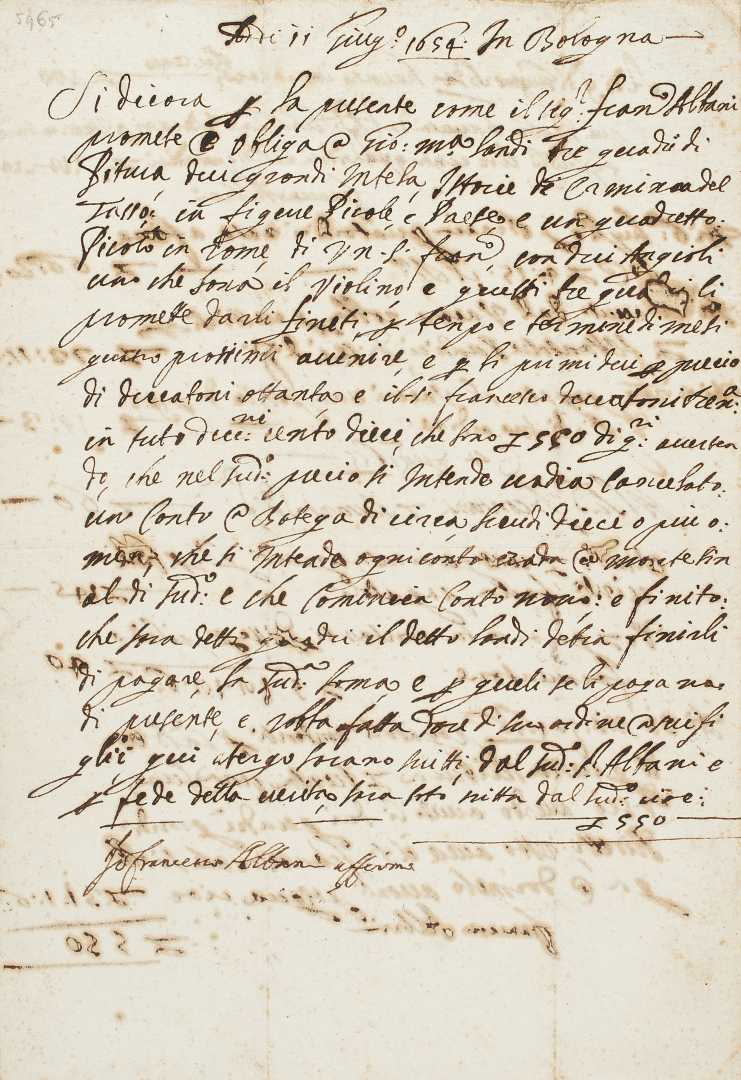 5965
Adi 11 Giug.o 1654: In Bologna
Si dicora p la presente come il sig.r Fran.co Albani
promete e obliga a Gio: m.a Sandi tre quadri di
Pitura dui grandi In tela Istorie de Erminia del
Tasso: in figure Picole, e Paese, e un quadretto
Picolo in Rame di Un S. Fran.co con dui Angioli
uno che sona il violino e questi tre quadri li
promette darli finiti, p tempo e termine di mesi
quatro prossimi avenire, e p li primi dui p precio
di ducatoni ottanta e il S. Francesco ducatoni tren.a
in tuto duc.ni cento dieci, che sono £ 550 di q.ni averten
do, che nel sud.o precio si Intende vadia Cancelato
un Conto a Botega di circa scudi dieci o piu o
meno, che si Intende ogni conto vada a monte sin
al di sud.o e che Comincia Conto novo: e finito:
che sara detti quadri il detto Sandi debia finirli
di pagare, la sud.a soma e p queli se li paga
di presente, e robba fatta dare di suo ordine a sui fi
glii qui atergo sarano scritti, dal sud.o S. Albani e
p fede della verita, sara soto scritta dal sud.o
£ 550
Io Francesco Albani affermo